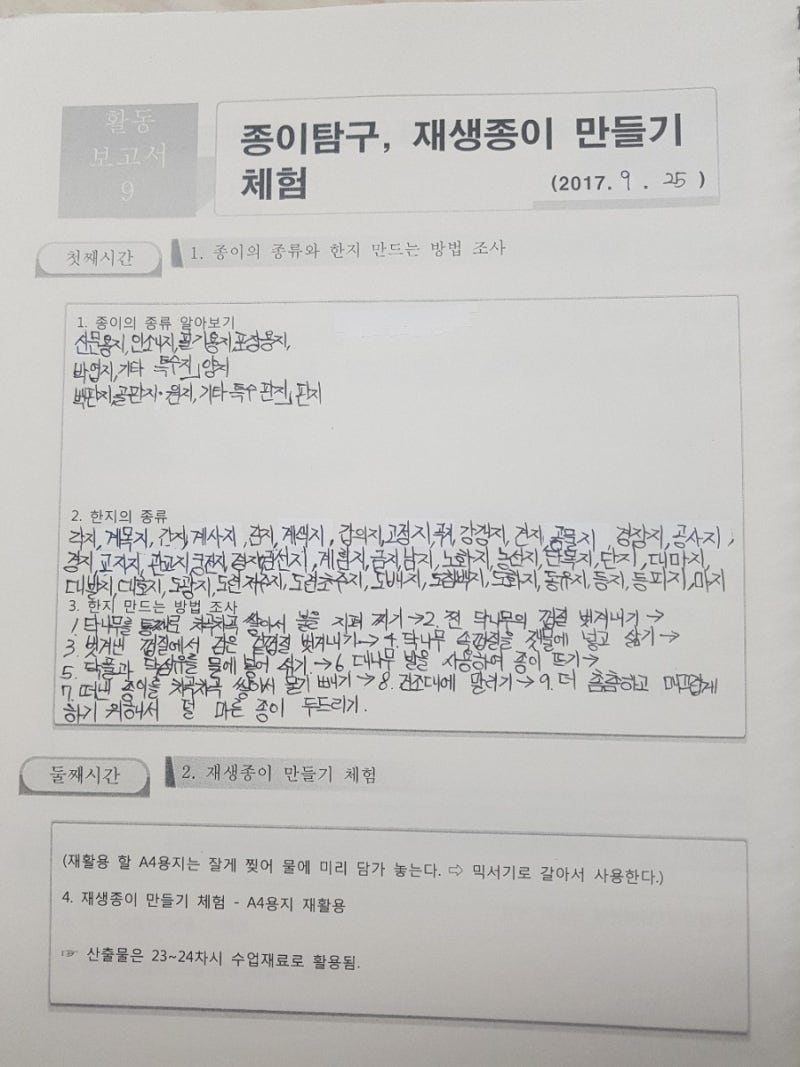 활동
보고서
9
종이탐구, 재생종이 만들기
체험
(2017. 9 . 25 )
첫째시간
1. 종이의 종류와 한지 만드는 방법 조사
1. 종이의 종류 알아보기
신문용지, 인쇄지, 필기용지, 포장용지,
박엽지, 기타 특수지」양지
백판지, 골판지·원지, 기타 특수 판지」판지
2. 한지의 종류
각지, 계목지, 간지, 계사지, 관지, 계색지, 갑의지, 고정지, 강경지, 견지, 공물지, 경장지, 공사지,
경지, 고지지, 관교지, 금선지, 계화지, 금지, 남지, 노화지, 농선지, 단목지, 단지, 대마지,
대발지, 대호지, 도광지, 도련저주지, 도련초주지, 도배지, 도침백지, 도화지, 동유지, 등지, 등피지, 마지
3. 한지 만드는 방법 조사
1. 닥나무를 통째로 차곡차곡 쌓아서 불을 지펴 찌기→2. 찐 닥나무의 껍질 벗겨내기→
3. 벗겨낸 껍질에서 검은 겉껍질 벗겨내기→4. 닥나무 속껍질을 잿물에 넣고 삶기→
5. 닥풀과 닥섬유를 물에 넣어 섞기→6. 대나무 발을 사용하여 종이 뜨기→
7. 떠낸 종이를 차곡차곡 쌓아서 물기 빼기→8. 건조대에 말리기→9. 더 촘촘하고 매끄럽게
하기 위해서 덜 마른 종이 두드리기.
둘째시간
2. 재생종이 만들기 체험
(재활용 할 A4용지는 잘게 찢어 물에 미리 담가 놓는다. ⇨ 믹서기로 갈아서 사용한다.)
4. 재생종이 만들기 체험 - A4용지 재활용
☞ 산출물은 23~24차시 수업재료로 활용됨.